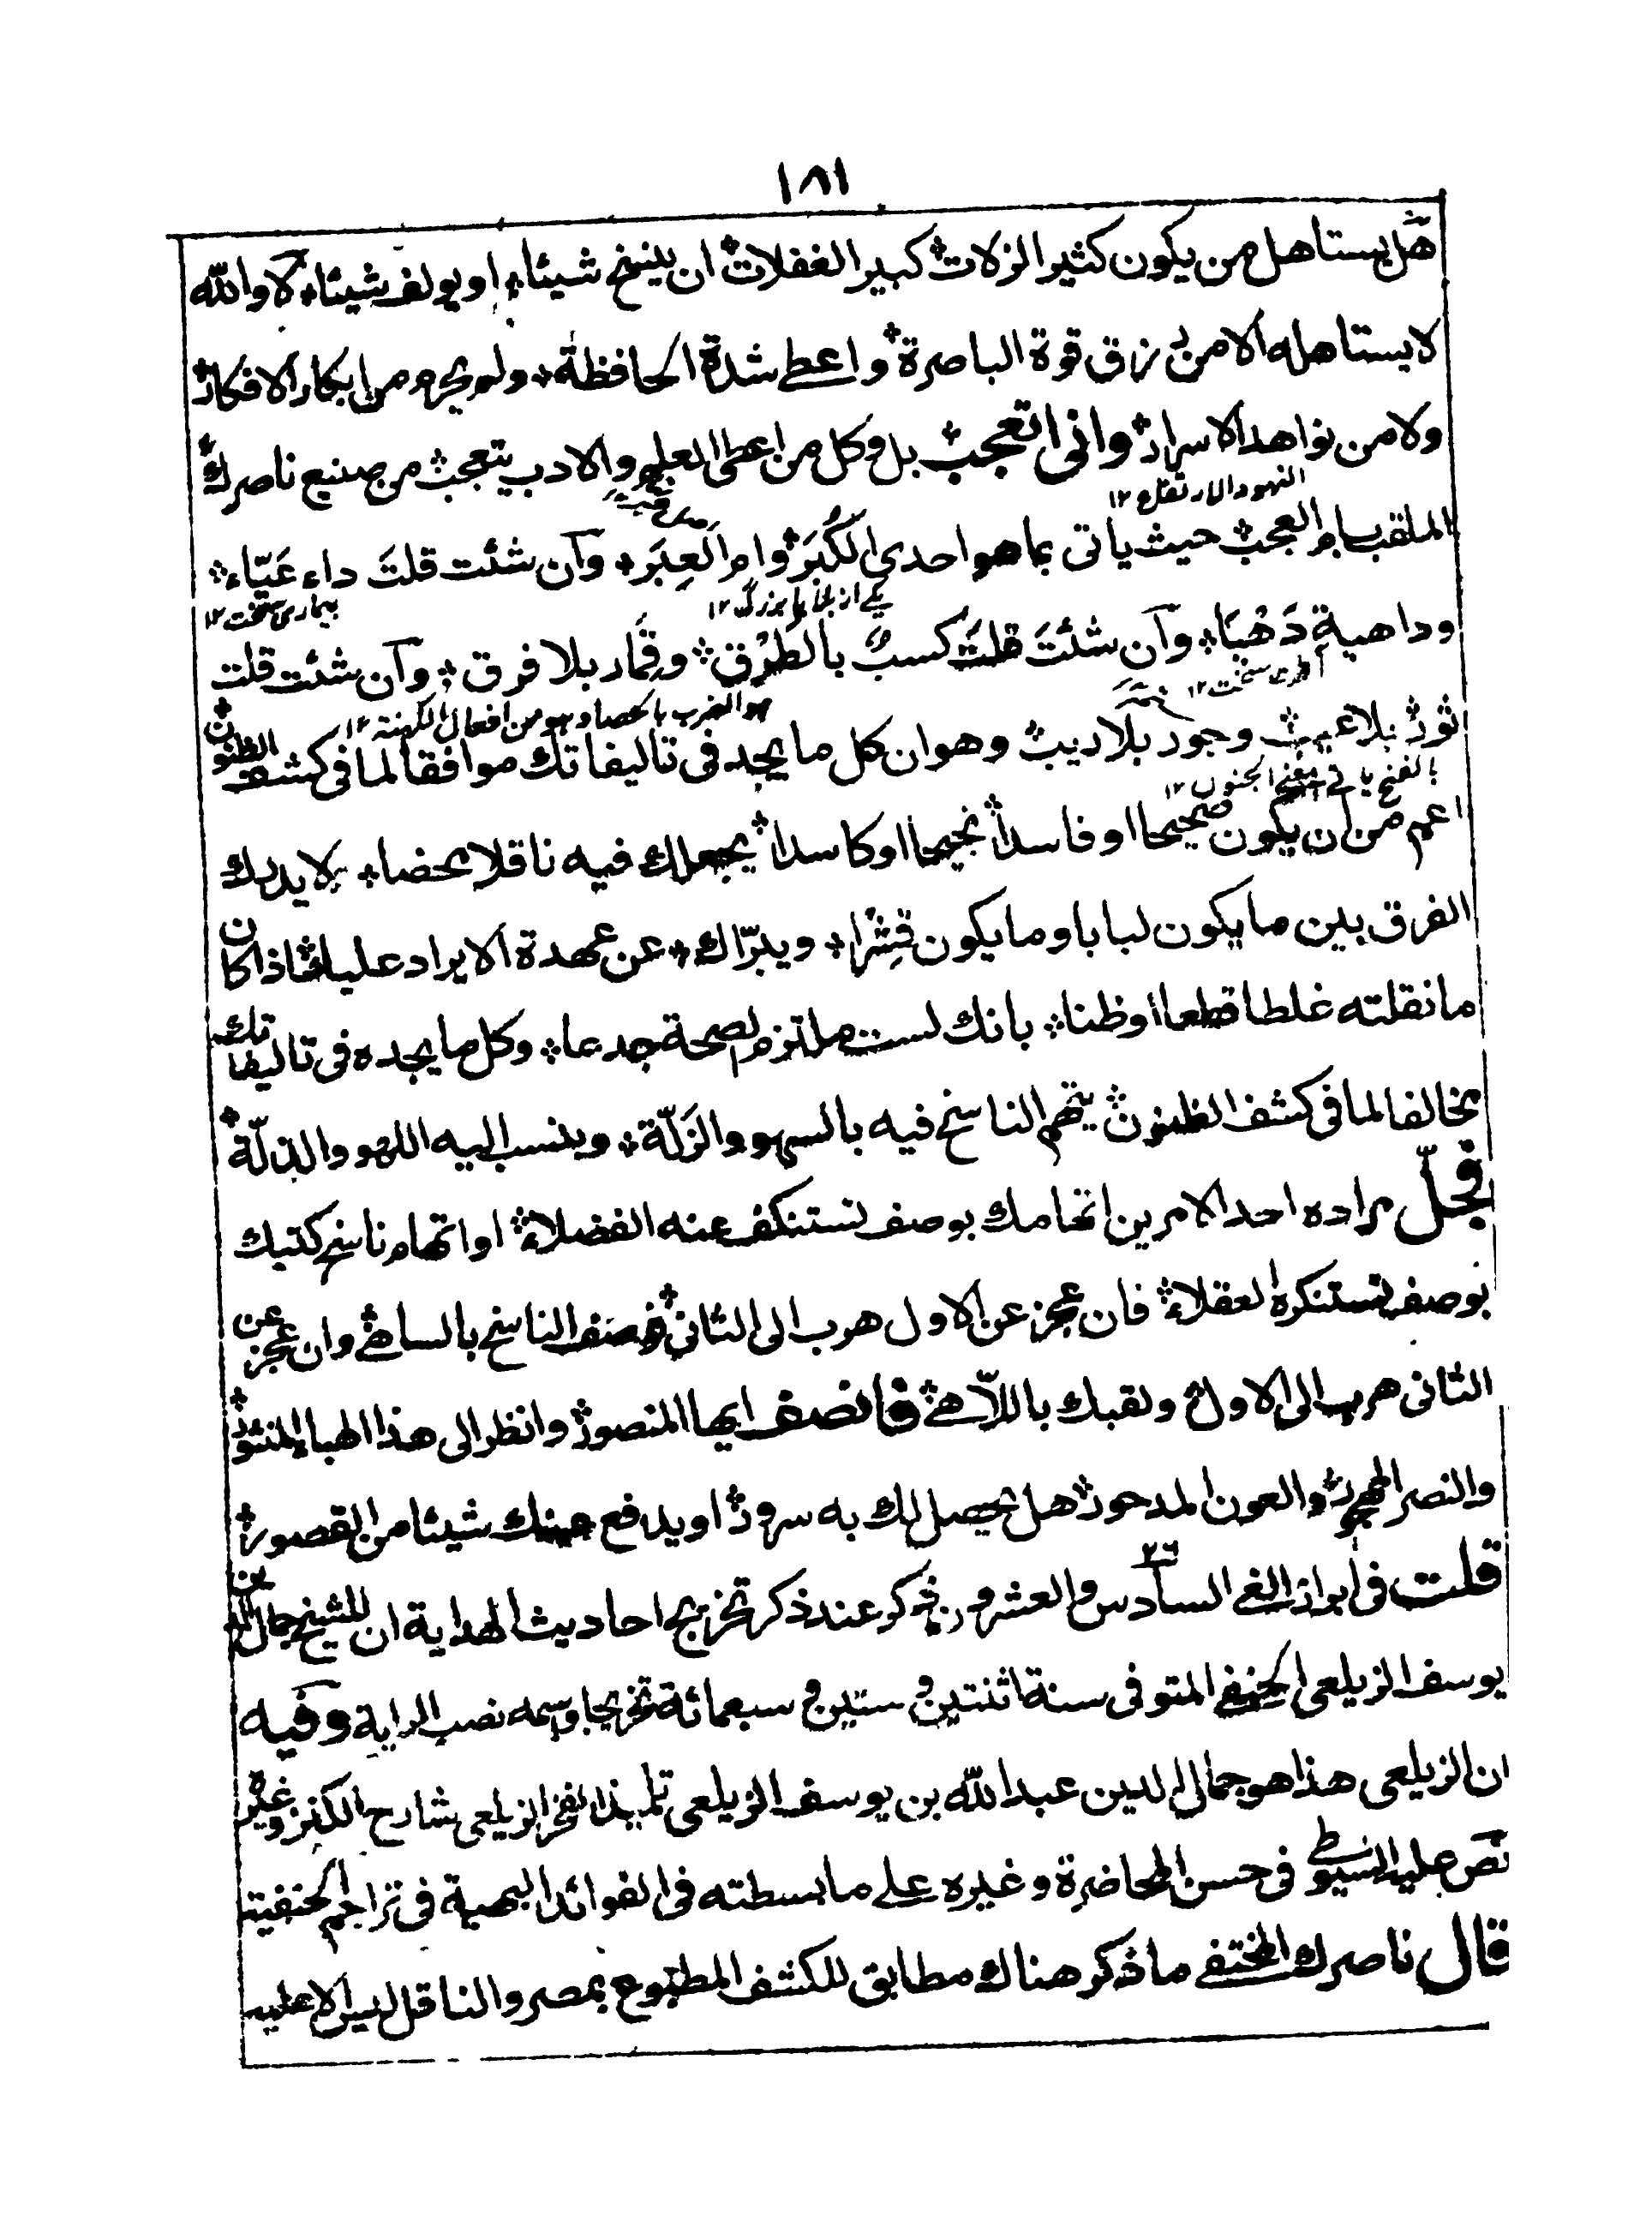 ١٨١
هل يستاهل من يكون كثير الزلات؞ كبير الغفلات؞ ان ينسخ شيئا؞ او يولف شيئا؞ كلا والله
لا يستاهله الا من رزق قوة الباصرة؞ واعطى شدة الحافظة؞ ولم يحرم من ابكار الافكار؞
ولا من نواهد الاسرار؞ وانى اتعجب؞ بل وكل من اعطى العلم والادب يتعجب؞ من صنيع ناصرك؞
النهود الارتفاع ١٢
الملقب بام العجب؞ حيث ياتى بما هو احدى الكُبَر؞ وام العِبَر؞ وان شئت قلتَ داء عَيّاء؞
يكے از بلاہاے بزرگ ١٢
بیماری سخت ١٢
وداهية دَهْيَا؞ وان شئتَ قلتَ كسبٌ بالطَرْق؞ وقِمَار بلا فرق؞ وان شئت قلت
سخت ١٢
هو الضرب بالحصا وهو من افعال الكهنة ١٢
ثور؞ بلا عيب؞ وجود بلا ريب؞ وهو ان كل ما يجد فى تاليفاتك موافقا لما فى كشف الظنون؞
بالفتح الجنون ١٢
اعم من ان يكون صحيحا او فاسدا؞ نجيحا او كاسدا؞ يجعلك فيه ناقلا محضا؞ لا يدرك
الفرق بين ما يكون لبابا وما يكون قِشْرا؞ ويبرّاك؞ عن عهدة الايراد عليك؞ اذا كان
ما نقلته غلطا قطعا او ظنا؞ بانك لست ملتزم الصحة جدعا؞ وكل ما يجده فى تاليفاتك
مخالفا لما فى كشف الظنون؞ يتهم الناسخ فيه بالسهو والزَلّة؞ وينسب اليه اللهو والذلّة؞
فجلّ مراده احد الامرين اتهامك بوصف تستنكف عنه الفضلاء؞ او اتهام ناسخ كتبك
بوصف تستنكره العقلاء؞ فان عجز عن الاول هرب الى الثانى؞ فوصف الناسخ بالساهى؞ وان عجز عن
الثانى هرب الى الاول؞ ولقبك باللاّهى؞ فانصف ايها المنصور؞ وانظر الى هذا الهباء المنثور؞
والنصر المهجور؞ والعون المدحور؞ هل يحصل لك به سرور؞ او يدفع عنك شيئا من القصور؞
قلت فى ابراز الغى السادس والعشرون ٢٦ ذكر عند ذكر تخريج احاديث الهداية ان للشيخ جمال الدين
يوسف الزيلعى الحنفى المتوفى سنة اثنتين وستين وسبعمائة تخريجا وسمه نصب الراية وفيه
ان الزيلعى هذا هو جمال الدين عبد الله بن يوسف الزيلعى تلميذ الفخر الزيلعى شارح الكنز وغيره
نص عليه السيوطى فى حسن المحاضرة وغيره على ما بسطته فى الفوائد البهية فى تراجم الحنفية
قال ناصرك المختفى ما ذكر هناك مطابق للكشف المطبوع بمصر والناقل ليس الا عليه